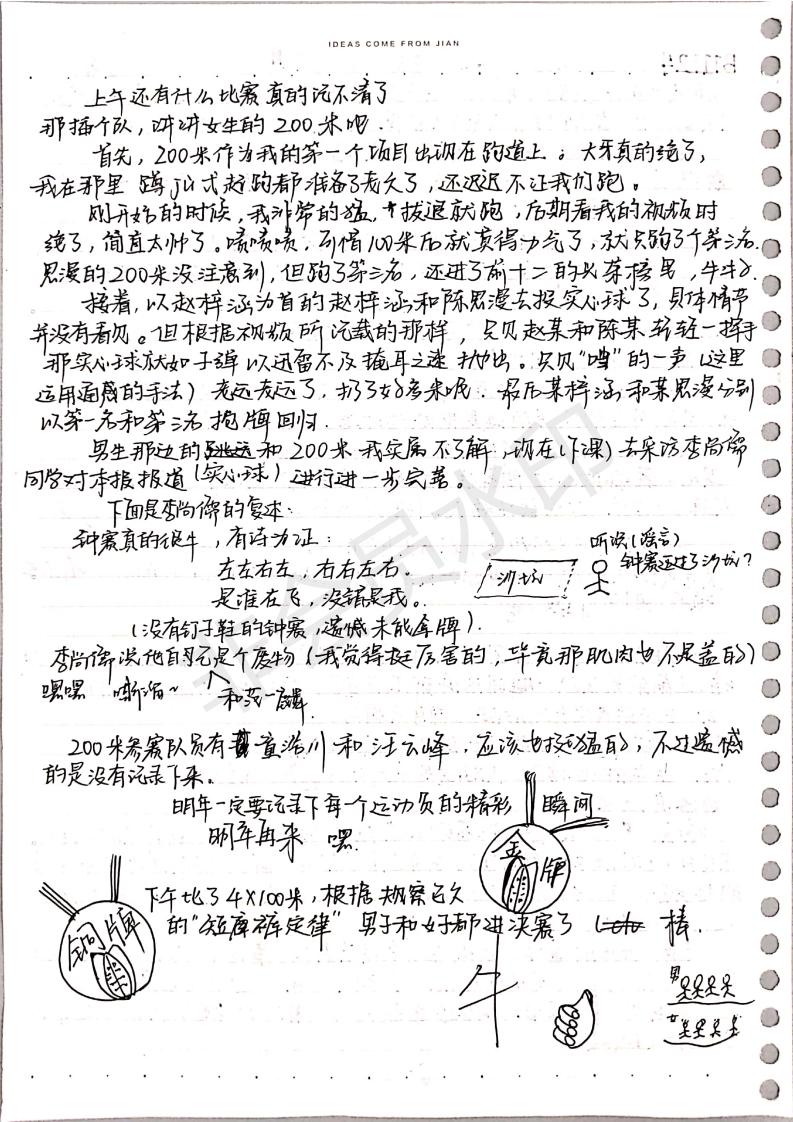 IDEAS COME FROM JIAN
上午还有什么比赛真的记不清了
那插个队，讲讲女生的200米吧.
首先，200米作为我的第一个项目出现在跑道上。大牙真的绝了，
我在那里 蹲jū式起跑都准备了老久了，还迟迟不让我们跑。
刚开始的时候，我非常的猛，拔腿就跑，后期看我的视频时
绝了，简直太帅了。啧啧啧，可惜100米后就莫得力气了，就只跑了个第三名.
思漫的200米没注意到，但跑了第三名，还进了前十二的光荣榜里，牛牛.
接着，以赵梓涵为首的赵梓涵和陈思漫去投实心球了，具体情节
并没有看见。但根据视频所记载的那样，只见赵某和陈某轻轻一挥手
那实心球就如子弹以迅雷不及掩耳之速抛出。只见"当"的一声（这里
运用通感的手法）老远老远了，扔了好多米呢. 最后某梓涵和某思漫分别
以第一名和第三名抱牌回归.
男生那边的跳远和200米我实属不了解，现在（下课）去采访李尚儒
同学对本报报道（实心球）进行进一步完善。
下面是李尚儒的复本：
钟赛真的很牛，有诗为证：
左左右左，右右左右。
是谁在飞，没错是我。
（没有钉子鞋的钟赛，遗憾未能拿牌）.
听说（谣言）
钟赛还进了沙坑？
沙坑
李尚儒说他自己是个废物（我觉得挺厉害的，毕竟那肌肉也不是盖的）
嘿嘿 嘶溜~
和范一麟
200米参赛队员有童浩川和汪云峰，应该也挺猛的，不过遗憾
的是没有记录下来。
明年一定要记录下每一个运动员的精彩瞬间.
明年再来 嘿
金牌
铜牌
下午比了4×100米，根据观察已久
的"短库裤定律" 男子和女子都进决赛了 棒.
牛
男
女
非会员水印